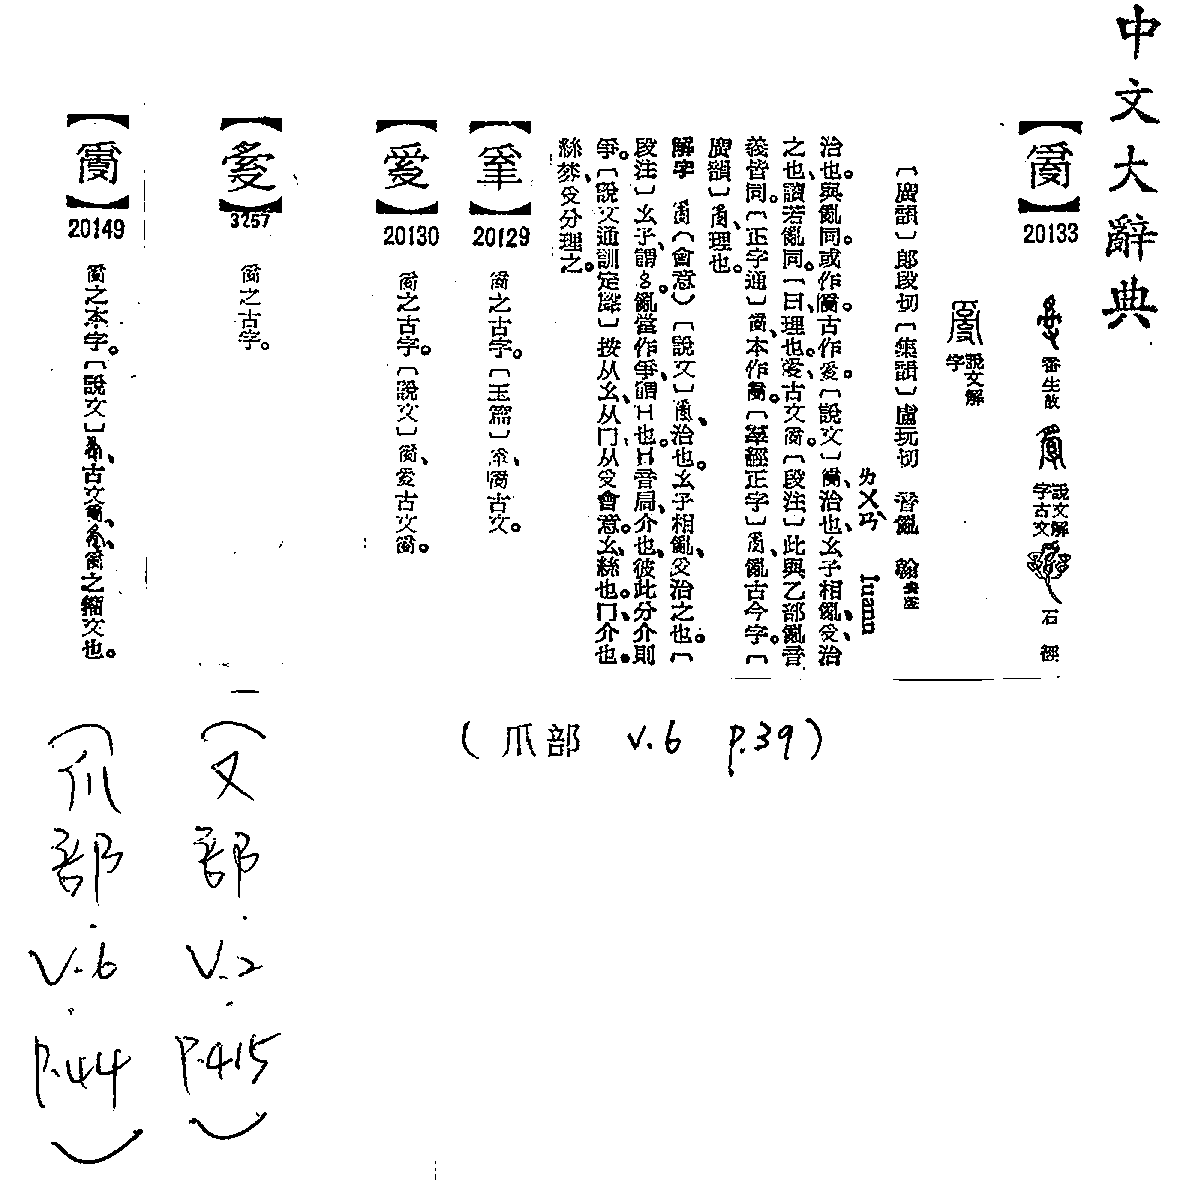 中文大辭典
【𤔔】
20133
番生𣪘
說文解字古文
石經
說文解字
〔廣韻〕郎段切〔集韻〕盧玩切 音亂 翰去聲
ㄌㄨㄢˋ luann
治也。與亂同。或作𤔔。古作𤔐。〔說文〕𤔔、治也、幺子相亂、𠬪治
之也、讀若亂同。一曰、理也。𤔐、古文𤔔。〔段注〕此與乙部亂音
義皆同。〔正字通〕𤔔、本作𤔔。〔羣經正字〕𤔔、亂古今字。〔
廣韻〕𤔔、理也。
解字 𤔔(會意)〔說文〕𤔔、治也。幺子相亂、𠬪治之也。〔
段注〕幺子、謂 亂當作爭、謂冂也。冂音扃、介也、彼此分介則
爭。〔說文通訓定聲〕按从幺、从冂、从𠬪會意。幺、絲也。冂、介也。
絲棼、𠬪分理之。
20129
𤔔之古字。〔玉篇〕 𤔔古文。
20130
𤔔之古字。〔說文〕𤔔、 古文𤔔。
(爪部 V.6 P.39)
3257
𤔔之古字。
(又部.V.2.P.415)
20149
𤔔之本字。〔說文〕 、古文𤔔、 、𤔔之籀文也。
(爪部.V.6.P.44)